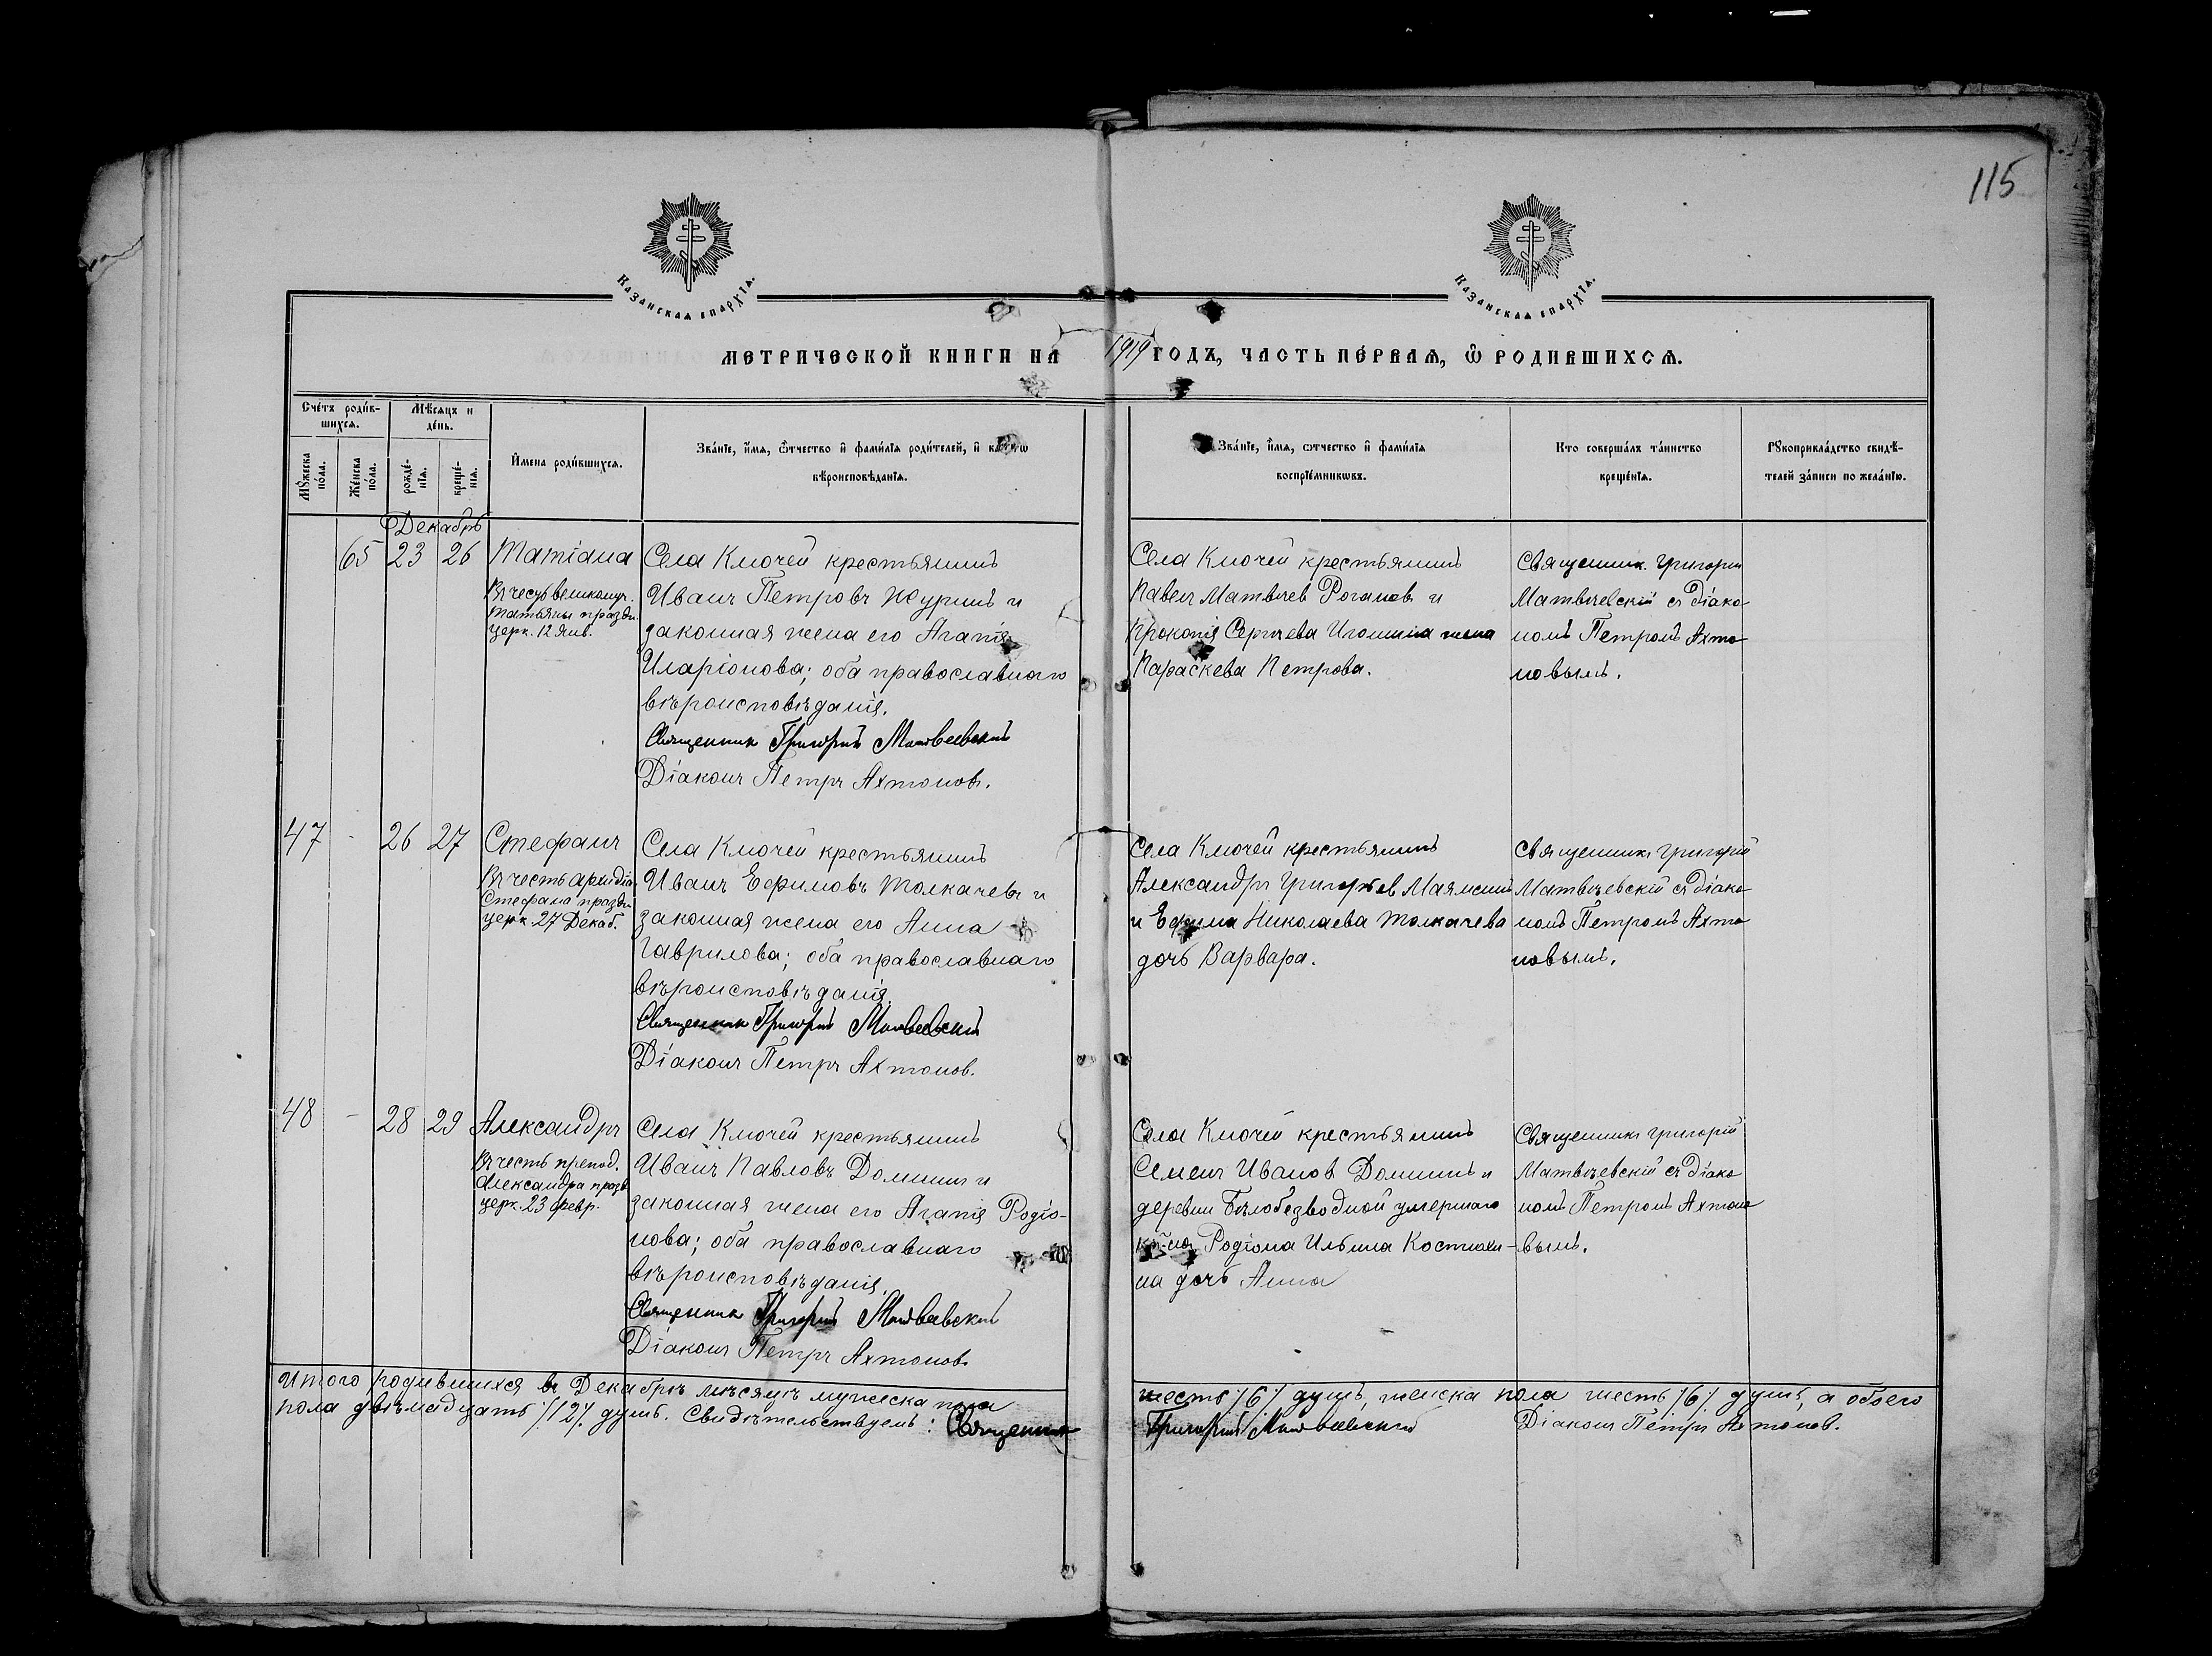 115
Казанская епархїѧ.
Казанская епархїѧ.
Метрической книги на 1919 годъ, часть пе́рваѧ, ѽ родившихсѧ.
Сче́тъ роди́в-
шихсѧ.
Мѣ́сѧцъ и
де́нь.
Мꙋ́жеска
по́ла.
Же́нска
по́ла.
рожде́-
нїѧ.
креще́-
нїѧ.
И́мена роди́вшихсѧ.
Зва́нїе, и́мѧ, ѻ́тчество и҆ фами́лїѧ роди́телей, и҆
вѣроисповѣ́данїѧ.
Зва́нїе, и́мѧ, ѻтчество и҆ фами́лїѧ
воспрїе́мникωвъ.
Кто соверша́лъ та́инство
креще́нїѧ.
Рꙋкоприкла́дство свидѣ́-
телей за́писи по жела́нїю.
Декабрь
65 23 26 Татіана
Въ честь великомуч.
Татьяны праздн.
церк. 12 Янв.
Села Ключей крестьянинъ
Иванъ Петровъ Журинъ и
законная жена его Агапія
Иларіонова; оба православнаго
вѣроисповѣданія.
Священник Григорій Матвеевский
Діаконъ Петръ Ахтоновъ.
Села Ключей крестьянинъ
Павелъ Матвѣев Рогановъ и
Прокопія Сергѣева Игонина жена
Параскева Петрова.
Священник Григорій
Матвѣевскій съ Діако-
номъ Петромъ Ахто-
новымъ.
47 - 26 27 Стефанъ
Въ честь архидіа.
Стефана праздн.
церк. 27 Декаб.
Села Ключей крестьянинъ
Иванъ Ефимовъ Толкачевъ и
законная жена его Анна
Гаврилова; оба православнаго
вѣроисповѣданія.
Священник Григорій Матвеевский
Діаконъ Петръ Ахтонов.
Села Ключей крестьянинъ
Александръ Григорьев
и Ефима Николаева Толкачева
дочь Варвара.
Священникъ Григорій
Матвѣевскій съ Діако-
номъ Петромъ Ахто-
новымъ.
48 - 28 29 Александръ
Въ честь препод.
Александра празд.
церк. 23 февр.
Села Ключей крестьянинъ
Иванъ Павловъ Доминъ и
законная жена его Агапія Родіо-
нова; оба православнаго
вѣроисповѣданія.
Священник Григорій Матвеевский
Діаконъ Петръ Ахтоновъ
Села Ключей крестьянинъ
Семенъ Иванов Доминъ и
деревни Бѣлобезводной умершаго
Родіона Ильина
на дочь Анна
Священникъ Григорій
Матвѣевскій съ Діако-
номъ Петромъ Ахтоно-
вымъ.
Итого родившихся въ Декабрѣ мѣсяцѣ мужеска пола шесть /6/ душъ, женска пола шесть /6/ душъ, а обоего
пола двѣнадцать /12/ душъ. Свидѣтельствуемъ: Священник Григорій Матвеевский Діаконъ Петръ Ахтонов.